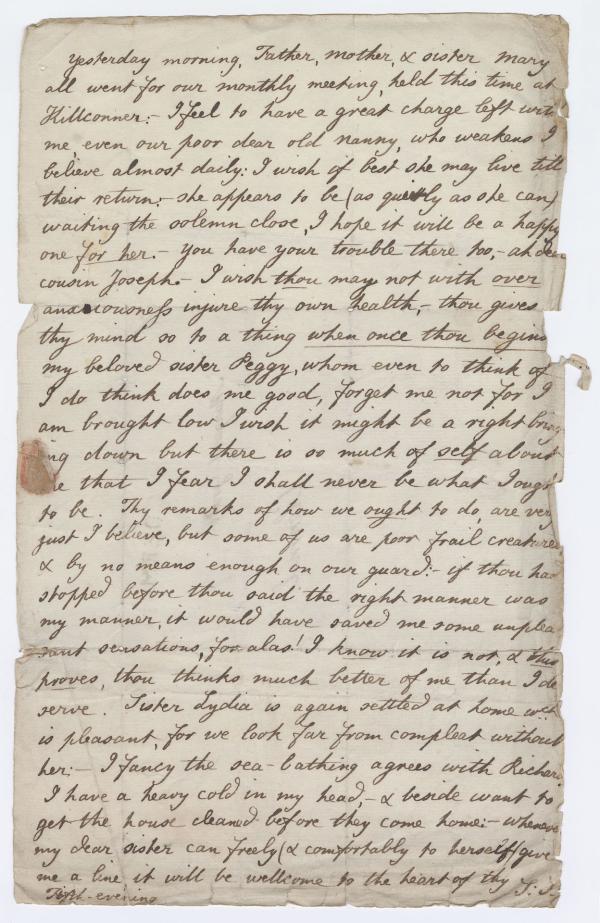 Yesterday morning, Father, mother, & sister Mary
all went for our monthly meeting, held this time at
Hillconner:- I feel to have a great charge left with
me, even our poor dear old nanny, who weakens I
believe almost daily: I wish if best she may live till
their return:- she appears to be (as quietly as she can)
waiting the solemn close, I hope it will be a happy
one for her.- you have your trouble there too,- ah dear
cousin Joseph.- I wish thou may not with over
anxiousness injure thy own health,- thou gives
thy mind so to a thing when once thou begins
my beloved sister Peggy, whom even to think of
I do think does me good, forget me not for I
am brought low I wish it might be a right bring
ing down but there is so much of self about
me that I fear I shall never be what I ought
to be. Thy remarks of how we ought to do, are very
just I believe, but some of us are poor frail creatures
& by no means enough on our guard:- if thou had
stopped before thou said the right manner was
my manner, it would have saved me some unplea
sant sensations, for alas! I know it is not, & this
proves, thou thinks much better of me than I de
serve. Sister Lydia is again settled at home wch
is pleasant, for we look far from compleat without
her:- I fancy the sea-bathing agrees with Richard
I have a heavy cold in my head,- & beside want to
get the house cleaned before they come home:- whenever
my dear sister can freely (& comfortably to herself) give
me a line it will be wellcome to the heart of thy S:
Fifth-evening